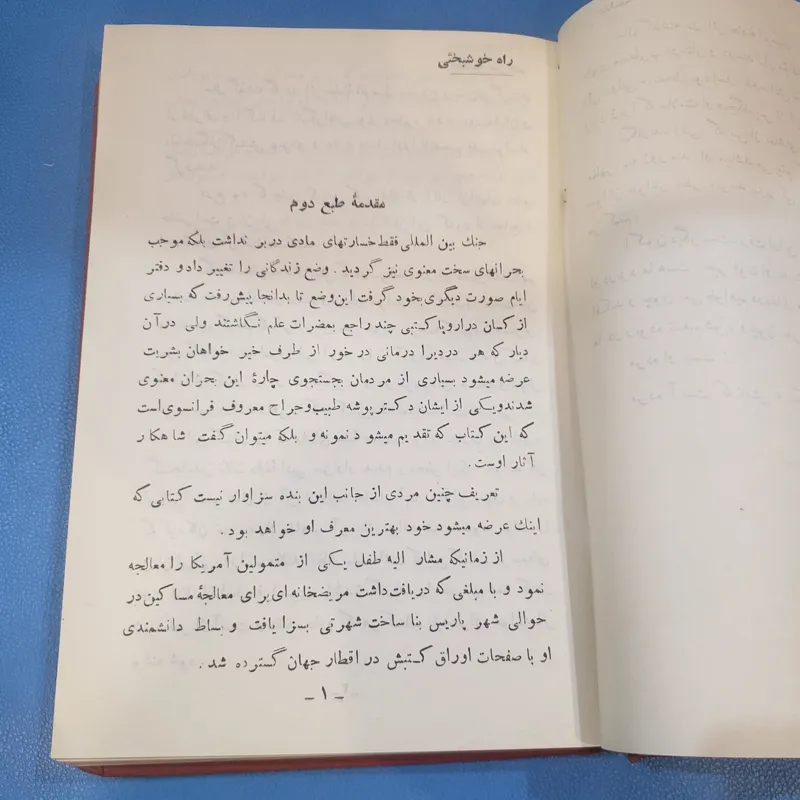 راه خوشبختی
مقدمهٔ طبع دوم
جنك بین المللی فقط خسارتهای مادی دربر نداشت بلکه موجب
بحرانهای سخت معنوی نیز گردید. وضع زندگانی را تغییر داد و دفتر
ایام صورت دیگری بخود گرفت این وضع تا بدانجا پیش رفت که بسیاری
از کسان در اروپا کتبی چند راجع بمضرات علم نگاشتند ولی در آن
دیار که هر دردیرا درمانی درخور از طرف خیر خواهان بشریت
عرضه میشود بسیاری از مردمان بجستجوی چارهٔ این بحران معنوی
شدند ویکی از ایشان دکتر پوشه طبیب و جراح معروف فرانسوی است
که این کتاب که تقدیم میشود نمونه و بلکه میتوان گفت شاهکار
آثار اوست.
تعریف چنین مردی از جانب این بنده سزاوار نیست کتابی که
اینك عرضه میشود خود بهترین معرف او خواهد بود.
از زمانیکه مشار الیه طفل یکی از متمولین آمریکا را معالجه
نمود و با مبلغی که دریافت داشت مریضخانه ای برای معالجهٔ مساکین در
حوالی شهر پاریس بنا ساخت شهرتی بسزا یافت و بساط دانشمندی
او با صفحات اوراق کتبش در اقطار جهان گسترده شد.
-۱-